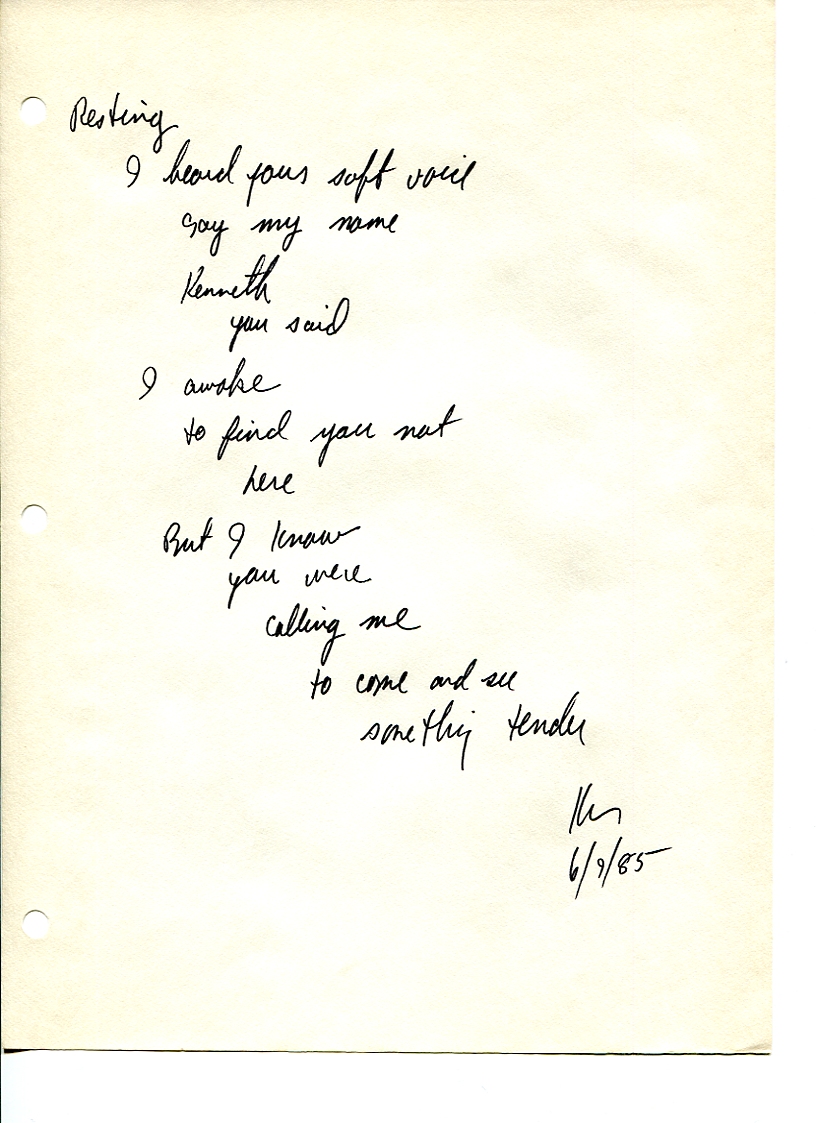 Resting
I heard your soft voice
say my name
Kenneth
you said
I awoke
to find you not
here
But I know
you were
calling me
to come and see
somethig tender
Ken
6/9/85